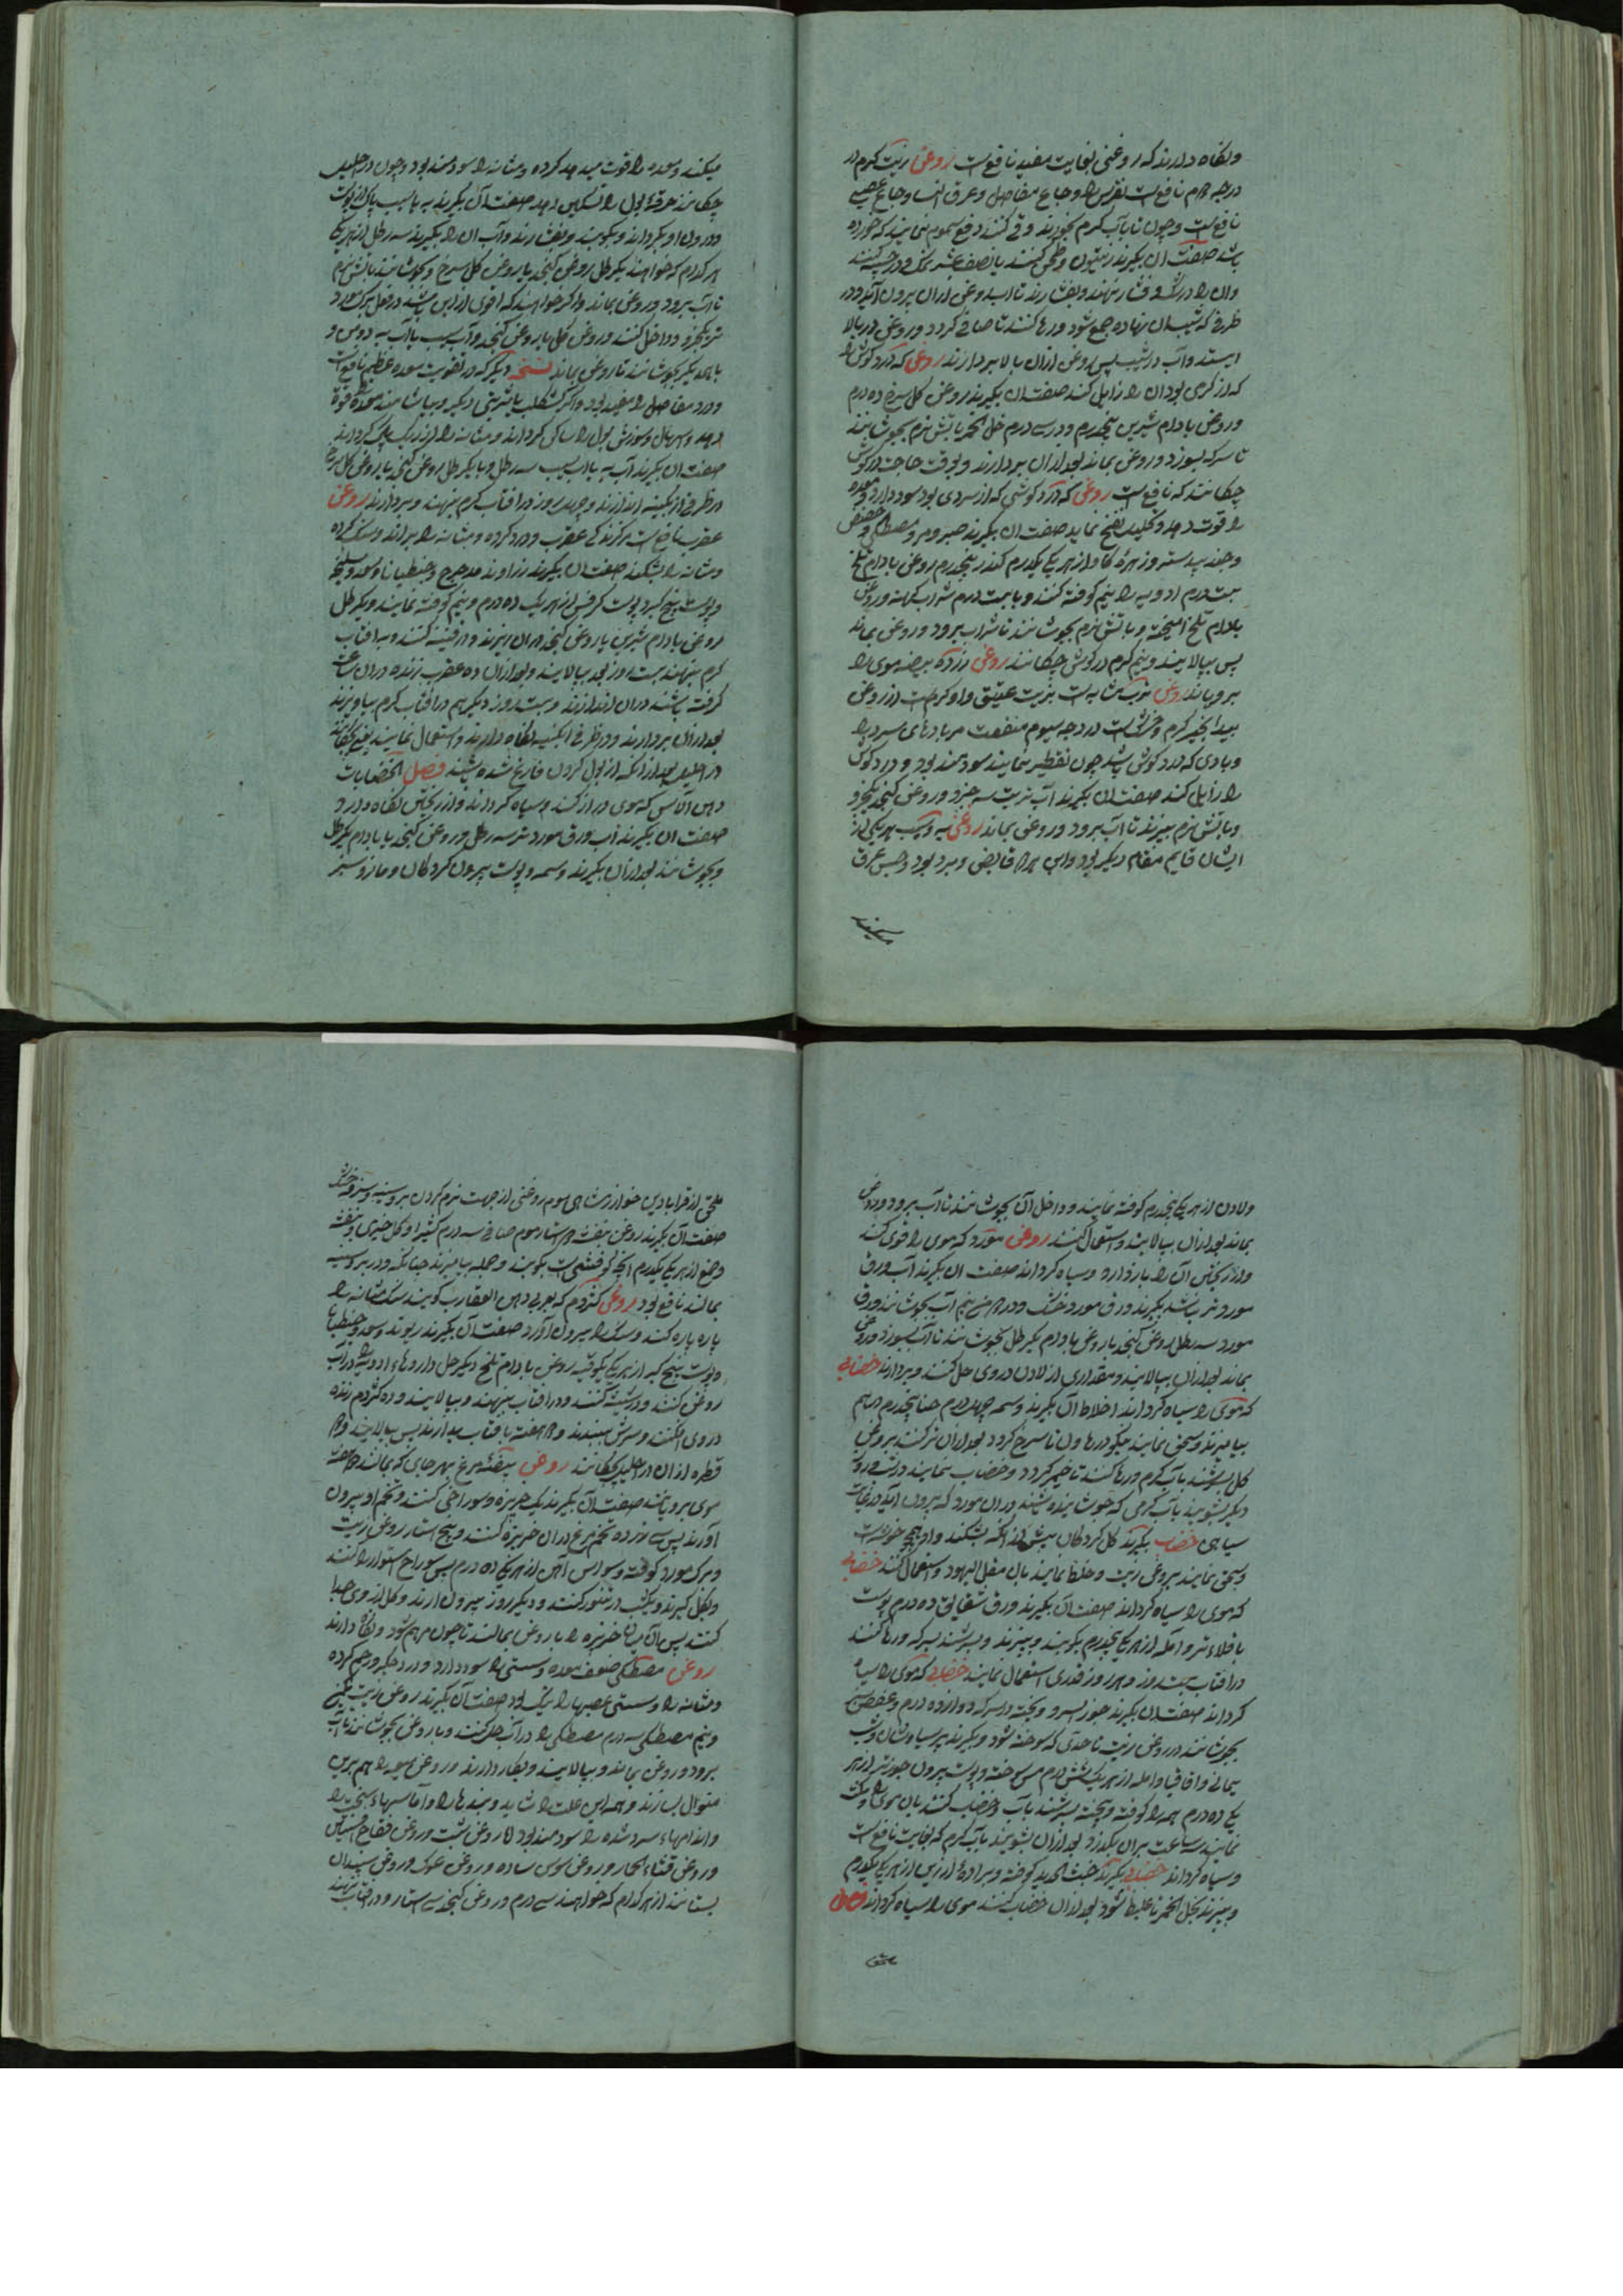 ونگاه دارند که روغنی بغایت مفید نافع است روغن زیت گرم در
درجه دوم نافع است نقرس را و اوجاع مفاصل و عرق النسا و اوجاع عصب
نافع است و چون با آب گرم بخورند و قی کنند دفع سموم
باشد صفت آن بگیرند زیتون
وان را در
ظرفی که شیب آن نهاده جمع شود و رها کنند تا صافی گردد و روغن در بالا
ایستد و آب در شیب پس روغن ازان بالا بردارند روغنی که درد گوش را
که از گرمی بود آن را زایل کند صفت آن بگیرند روغن گل سرخ ده درم
و روغن بادام شیرین پنجدرم و در سه درم خل الخمر بآتش نرم بجوشانند
تا سرکه بسوزد و روغن بماند بعد ازان بردارند و بوقت حاجت در گوش
چکانند که نافع است روغنی که درد گوشی که از سردی بود سود دارد و معده
را قوت دهد و تحلیل نفخ نماید صفت آن بگیرند صبر و مر و مصطکی و حضض
و جند بیدستر و زهره گاو از هر یک یکدرم کندر پنجدرم روغن بادام تلخ
بیست درم ادویه را نیم کوفته کنند و با بیست درم شراب کهنه و روغن
بادام تلخ آمیخته و بآتش نرم بجوشانند تا شراب برود و روغن بماند
پس بپالایند و نیم گرم در گوش چکانند روغن زرده بیضه موی را
برویاند روغن ترب مشابه است بزیت عتیق و او گرم است از روغن
بیدانجیر گرم و خشک است در درجه سیوم منفعت مر بادهای سرد را
و بادی که در گوش باشد چون تقطیر نمایند سودمند بود و درد گوش
را زایل کند صفت آن بگیرند آب ترب سه جزو و روغن کنجد یکجزو
و بآتش نرم بپزند تا آب برود و روغن بماند روغن به و سیب هر یکی از
ایشان قایم مقام دیگر بود و این هر دو قابض و مبرد بود و حبس عرق
میکند و معده را قوت میدهد گرده و مثانه را سودمند بود و چون در احلیل
چکانند حرقة البول را تسکین دهد صفت آن بگیرند به یا سیب پاک از پوست
و درون او بگردانند و بکوبند و بفشارند و آب آن را بگیرند سه رطل از هر یک
هر کدام که خواهند یکرطل روغن کنجد یا روغن گل سرخ و بجوشانند بآتش نرم
تا آب برود و روغن بماند و اگر خواهند که اقوی از این باشد
تر یکجزو و داخل کنند و روغن گل یا روغن کنجد و آب سیب یا آب به دو من و
با هم دیگر بجوشانند تا روغن بماند نسخه دیگر که در تقویت معده عظیم نافع است
و درد مفاصل را مفید بود
دهد و اسهال و سوزش بول را ساکن گرداند و مثانه را از ریگ پاک گرداند
صفت آن بگیرند آب به یا آب سیب سه رطل و با یکرطل روغن کنجد یا روغن گل سرخ
در ظرفی از آبگینه اندازند و چهل روز در آفتاب گرم بنهند و بردارند روغن
عقرب نافع است مر گزندگی عقرب و درد گرده و مثانه را براند و سنگ گرده
و مثانه را بشکند صفت آن بگیرند زراوند مدحرج و جنطیانا و سعد و سلیخه
و پوست بیخ کبر و پوست کرفس از هر یک ده درم و نیم کوفته نمایند و یکرطل
روغن بادام شیرین یا روغن کنجد بران ریزند و در قنینه کنند و به آفتاب
گرم بنهند بیست روز بعد بپالایند و بعد ازان ده عقرب زنده دران ساعت
گرفته باشند دران اندازند و بیست روز دیگر هم در آفتاب گرم بیاویزند
بعد ازان بردارند و در ظرفی آبگینه نگاه دارند و استعمال نمایند یعنی بچکانند
در احلیل بعد از آنکه از بول کردن فارغ شده باشند فصل الخضابات
دهن الآس که موی دراز کند و سیاه گرداند و از ریختن نگاه دارد
صفت آن بگیرند آب ورق مورد تر سه رطل و روغن کنجد یا بادام یکرطل
و بجوشانند بعد ازان بگیرند وسمه و پوست بیرون گردگان و مازو سبز
ولادن از هر یک پنجدرم کوفته نمایند و داخل آن بجوشانند تا آب برود و روغن
بماند بعد ازان بپالایند و استعمال کنند روغن مورد که موی را قوی کند
و از ریختن آن را باز دارد و سیاه گرداند صفت آن بگیرند آب ورق
مورد تر باشد بگیرند ورق مورد خشک و در دو من نیم آب بجوشانند ورق
مورد سه رطل روغن کنجد یا روغن بادام یکرطل بجوشانند تا آب بسوزد و روغن
بماند بعد ازان بپالایند و مقداری از لادن در وی حل کنند و بردارند خضابی
که موی را سیاه گرداند اخلاط آن بگیرند وسمه چهل درم حنا پنجدرم باهم
بیامیزند و سحق نمایند نیکو در هاون تا سرخ گردد بعد ازان تر کنند بروغن
گل بسرشند بآب گرم و رها کنند تا خمیر گردد و خضاب نمایند در شب و روز
دیگر بشویند بآب گرمی که جوشانیده باشند دران مورد که بیرون آید در غایت
سیاهی خضاب بگیرند گل گردگان پیش از آنکه بشکفد
و سحق نمایند بروغن زیت و خلط نمایند بآن مقل الیهود و استعمال کنند خضابی
که موی را سیاه گرداند صفت آن بگیرند ورق شقایق ده درم پوست
باقلاء تر و آمله از هر یک پنجدرم بکوبند و بپزند و بسرشند بسرکه و رها کنند
در آفتاب بیست روز و هر روز قدری استعمال نمایند خضابی که موی را سیاه
گرداند صفت آن بگیرند جوز السرو و پخته در سرکه دوازده درم و عفص سبز
بجوشانند در روغن زیت تا حدی که سوخته شود و بگیرند پرسیاوشان و شب
یمانی و اقاقیا و آمله از هر یک شش درم مس سوخته و پوست بیرون جوز تر از هر
یک ده درم همه را کوفته و بیخته بسرشند بآب و خضاب کنند بآن موی را
نمایند سه ساعت بران بگذرد بعد ازان بشویند بآب گرم که بغایت نافع است
و سیاه گرداند خضابی بگیرند خبث الحدید کوفته و براده ارزیز از هر یک یکدرم
و بپزند بخل الخمر تا غلیظ شود بعد ازان خضاب کنند موی را سیاه گرداند فصل
ملحق از قرابادین
صفت آن بگیرند روغن بنفشه
وصمغ از هر یک یکدرم آنچه کوفتنی است بکوبند و جمله بیامیزند چنانکه و در بر و سینه
بمالند نافع بود روغن کژدم که بعربی دهن العقارب گویند سنگ مثانه را
پاره پاره کند و سنگ را بیرون آورد صفت آن بگیرند ریوند و سعد و جنطیانا
و پوست بیخ کبر از هر یک یکوقیه روغن بادام تلخ
روغن کنند و در شیشه کنند و در آفتاب بنهند و بپالایند و ده کژدم زنده
در وی افکنند و سرش ببندند و دو هفته بآفتاب بدارند پس بپالایند و دو
قطره ازان در احلیل چکانند روغن بیضه مرغ بهر جای که بمالند
موی برویاند صفت آن بگیرند یک خربزه و سوراخی کنند و تخم او بیرون
آورند پس سه زرده تخم مرغ دران خربزه کنند و پنج استار روغن زیت
و برگ مورد کوفته و سوالس آهن از هر یک ده درم پس سوراخ استوار کنند
و بگل گیرند و یکشب در تنور کنند و دیگر روز بیرون آرند و گل از وی جدا
کنند پس آن میان خربزه را با روغن بمالند تا چون مرهم شود و نگاه دارند
روغن مصطکی ضعف معده و سستی را سود دارد و درد جگر و رحم گرده
و مثانه را و سستی عصبها را نیک بود صفت آن بگیرند روغن زیت
و نیم مصطکی سه درم مصطکی را در آب حل کنند و با روغن بجوشانند تا آب
برود و روغن بماند و بپالایند و بکار دارند و روغن میعه را هم برین
منوال بسازند و همه این علت را شاید و بندها را و آماسهاء سخت را
و اندامهاء سرد شده را سودمند بود اما روغن شبت و روغن فقاح
و روغن قثاء الحمار و روغن سوسن ساده و روغن
بستانند از هر کدام که خواهند سی درم و روغن کنجد سی استار و در آفتاب بنهند